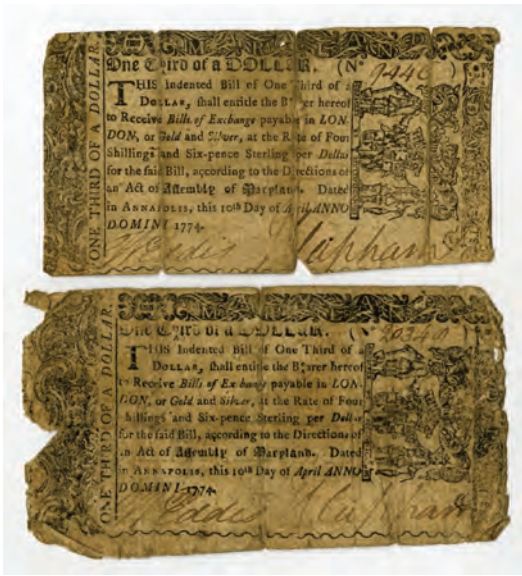 MARYLAND
One Third of a DOLLAR. (No 9440 )
THIS Indented Bill of One Third of a
DOLLAR, shall entitle the Bearer hereof
to Receive Bills of Exchange payable in LON-
DON, or Gold and Silver, at the Rate of Four
Shillings and Six-pence Sterling per Dollar
for the said Bill, according to the Directions of
an Act of Assembly of Maryland. Dated
in ANNAPOLIS, this 10th Day of April ANNO
DOMINI 1774.
W Eddis J Clapham
ONE THIRD OF A DOLLAR.
MARYLAND
One Third of a DOLLAR. (No
THIS Indented Bill of One Third of a
DOLLAR, shall entitle the Bearer hereof
to Receive Bills of Exchange payable in LON-
DON, or Gold and Silver, at the Rate of Four
Shillings and Six-pence Sterling per Dollar
for the said Bill, according to the Directions of
an Act of Assembly of Maryland. Dated
in ANNAPOLIS, this 10th Day of April ANNO
DOMINI 1774.
W Eddis J Clapham
ONE THIRD OF A DOLLAR.